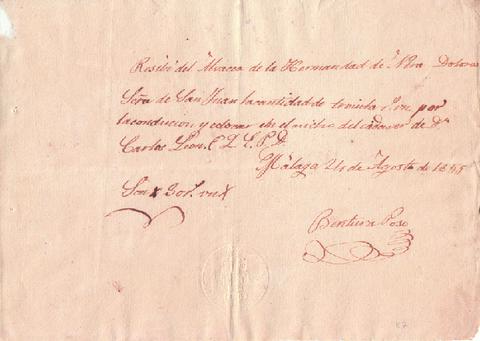 Resibí del Alvacea de la Hermandad de Nra Dolorosa
Señra de San Juan la cantidad de treinta r.s vn. por
la conducion, y colocar en el nicho del cadaver de Dn
Carlos Leon. E. Q. E. P. D.
Málaga 24 de Agosto de 1855
Son 30 r. vn
Bentura Poso